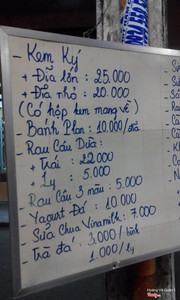 - Kem Ký
+ Đĩa lớn : 25.000
+ Đĩa nhỏ : 20.000
(Có hộp kem mang về)
- Bánh Plan : 10.000/đĩa
- Rau Câu Dừa :
+ Trái : 22.000
+ Ly : 5.000
- Rau Câu 3 màu : 5.000
- Yagurt Đá : 10.000
- Sữa Chua Vinamilk : 7.000
- Trà đá : 3.000/bình
1.000/ly